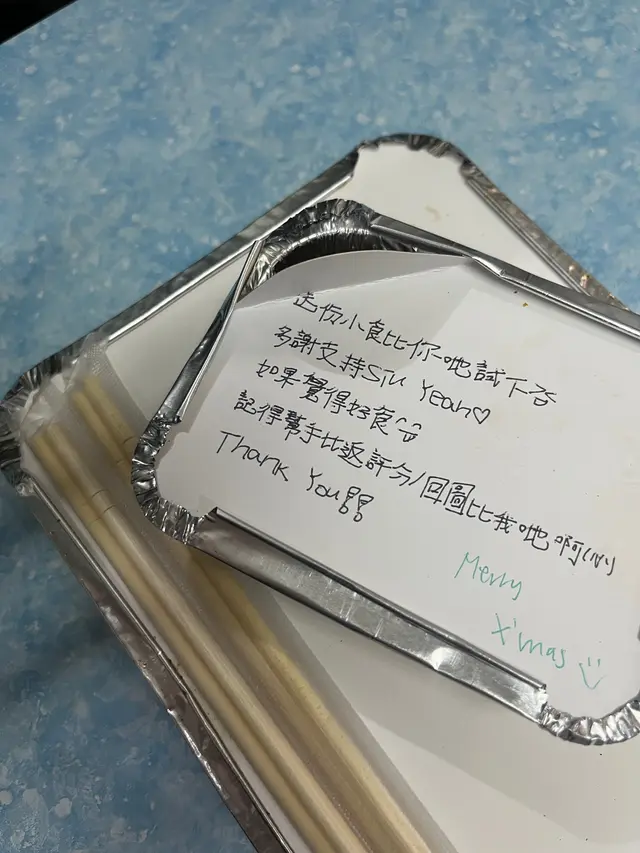 送份小食比你哋試下
多謝支持Siu Yeah♡
如果覺得好食^^
記得幫手比返評分/回圖比我哋啊(///)
Thank You!!
Merry
X'mas